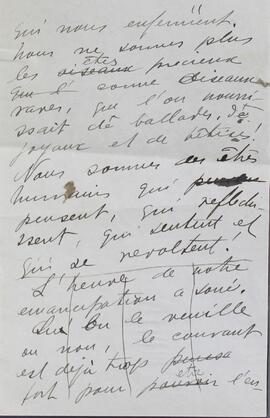 qui nous enferment.
Nous ne sommes plus
êtres
les oiseaux précieux
que l'
oiseaux
rares, que l'on nourris
sait de ballades, de
joyaux et de bêtises!
Nous sommes des êtres
humains qui
pensent, qui réfléchis
sent, qui sentent et
qui se revoltent!
L'heure de notre
emancipation a sonné.
Qu'on le veuille
ou non, le courant
est déjà trop
fort pour l'en